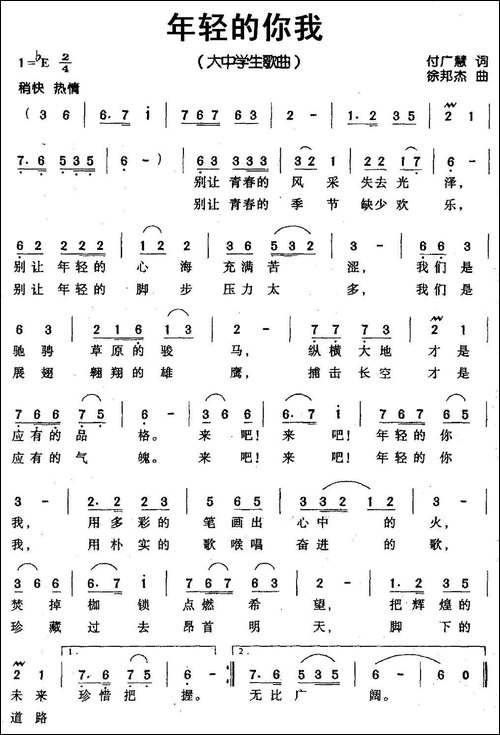 年轻的你我
(大中学生歌曲)
1=♭E 2/4
付广慧 词
徐邦杰 曲
稍快 热情
(3 6 | 6. 7 1 | 7 6 7 6 3 | 2 - | 1. 2 3 5 | 2 1 |
7. 6 5 3 5 | 6 - ) | 6 3 3 3 3 | 3 2 1 | 2 2 1 7 | 6 - |
别让 青春的 风 采 失去 光 泽,
别让 青春的 季 节 缺少 欢 乐,
6 2 2 2 2 | 1 2 2 | 3 6 5 3 2 | 3 - | 6 6 3 |
别让 年轻的 心 海 充满 苦 涩, 我们 是
别让 年轻的 脚 步 压力 太 多, 我们 是
6 3 | 2 2 1 6 1 3 | 2 - | 7 7 7 3 | 2 1 |
驰 骋 草原的 骏 马, 纵横 大地 才 是
展 翅 翱翔的 雄 鹰, 搏击 长空 才 是
7 6 6 7 5 | 6 - | 3 6 6 | 6. 7 1 | 7 6 7 6 6 5 |
应有的 品 格。 来 吧! 来 吧! 年轻的 你
应有的 气 魄。 来 吧! 来 吧! 年轻的 你
3 - | 2. 2 2 3 | 5 2 2 | 3 3 2 1 2 | 3 - |
我, 用 多 彩 的 笔 画 出 心 中 的 火,
我, 用 朴 实 的 歌 喉 唱 奋 进 的 歌,
3 6 6 | 6. 7 1 | 7 6 7 6 3 | 2 - | 1. 2 3 5 |
焚 掉 枷 锁 点 燃 希 望, 把 辉 煌 的
珍 藏 过 去 昂 首 明 天, 脚 下 的
1. 2.
2 1 | 7. 6 7 5 | 6 - :| 7. 6 5 3 5 | 6 - | 6 0 ‖
未 来 珍 惜 把 握。 无 比 广 阔。
道 路